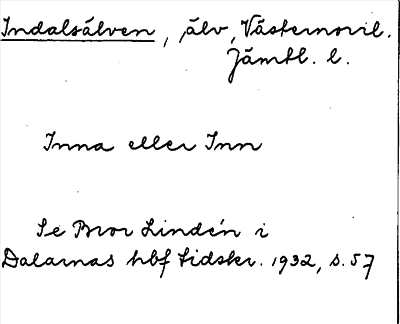 Indalsälven, älv, Västernorrl.
Jämtl. l.
Inna eller Inn
Se Bror Lindén i
Dalarnas hbf tidskr. 1932, s. 57